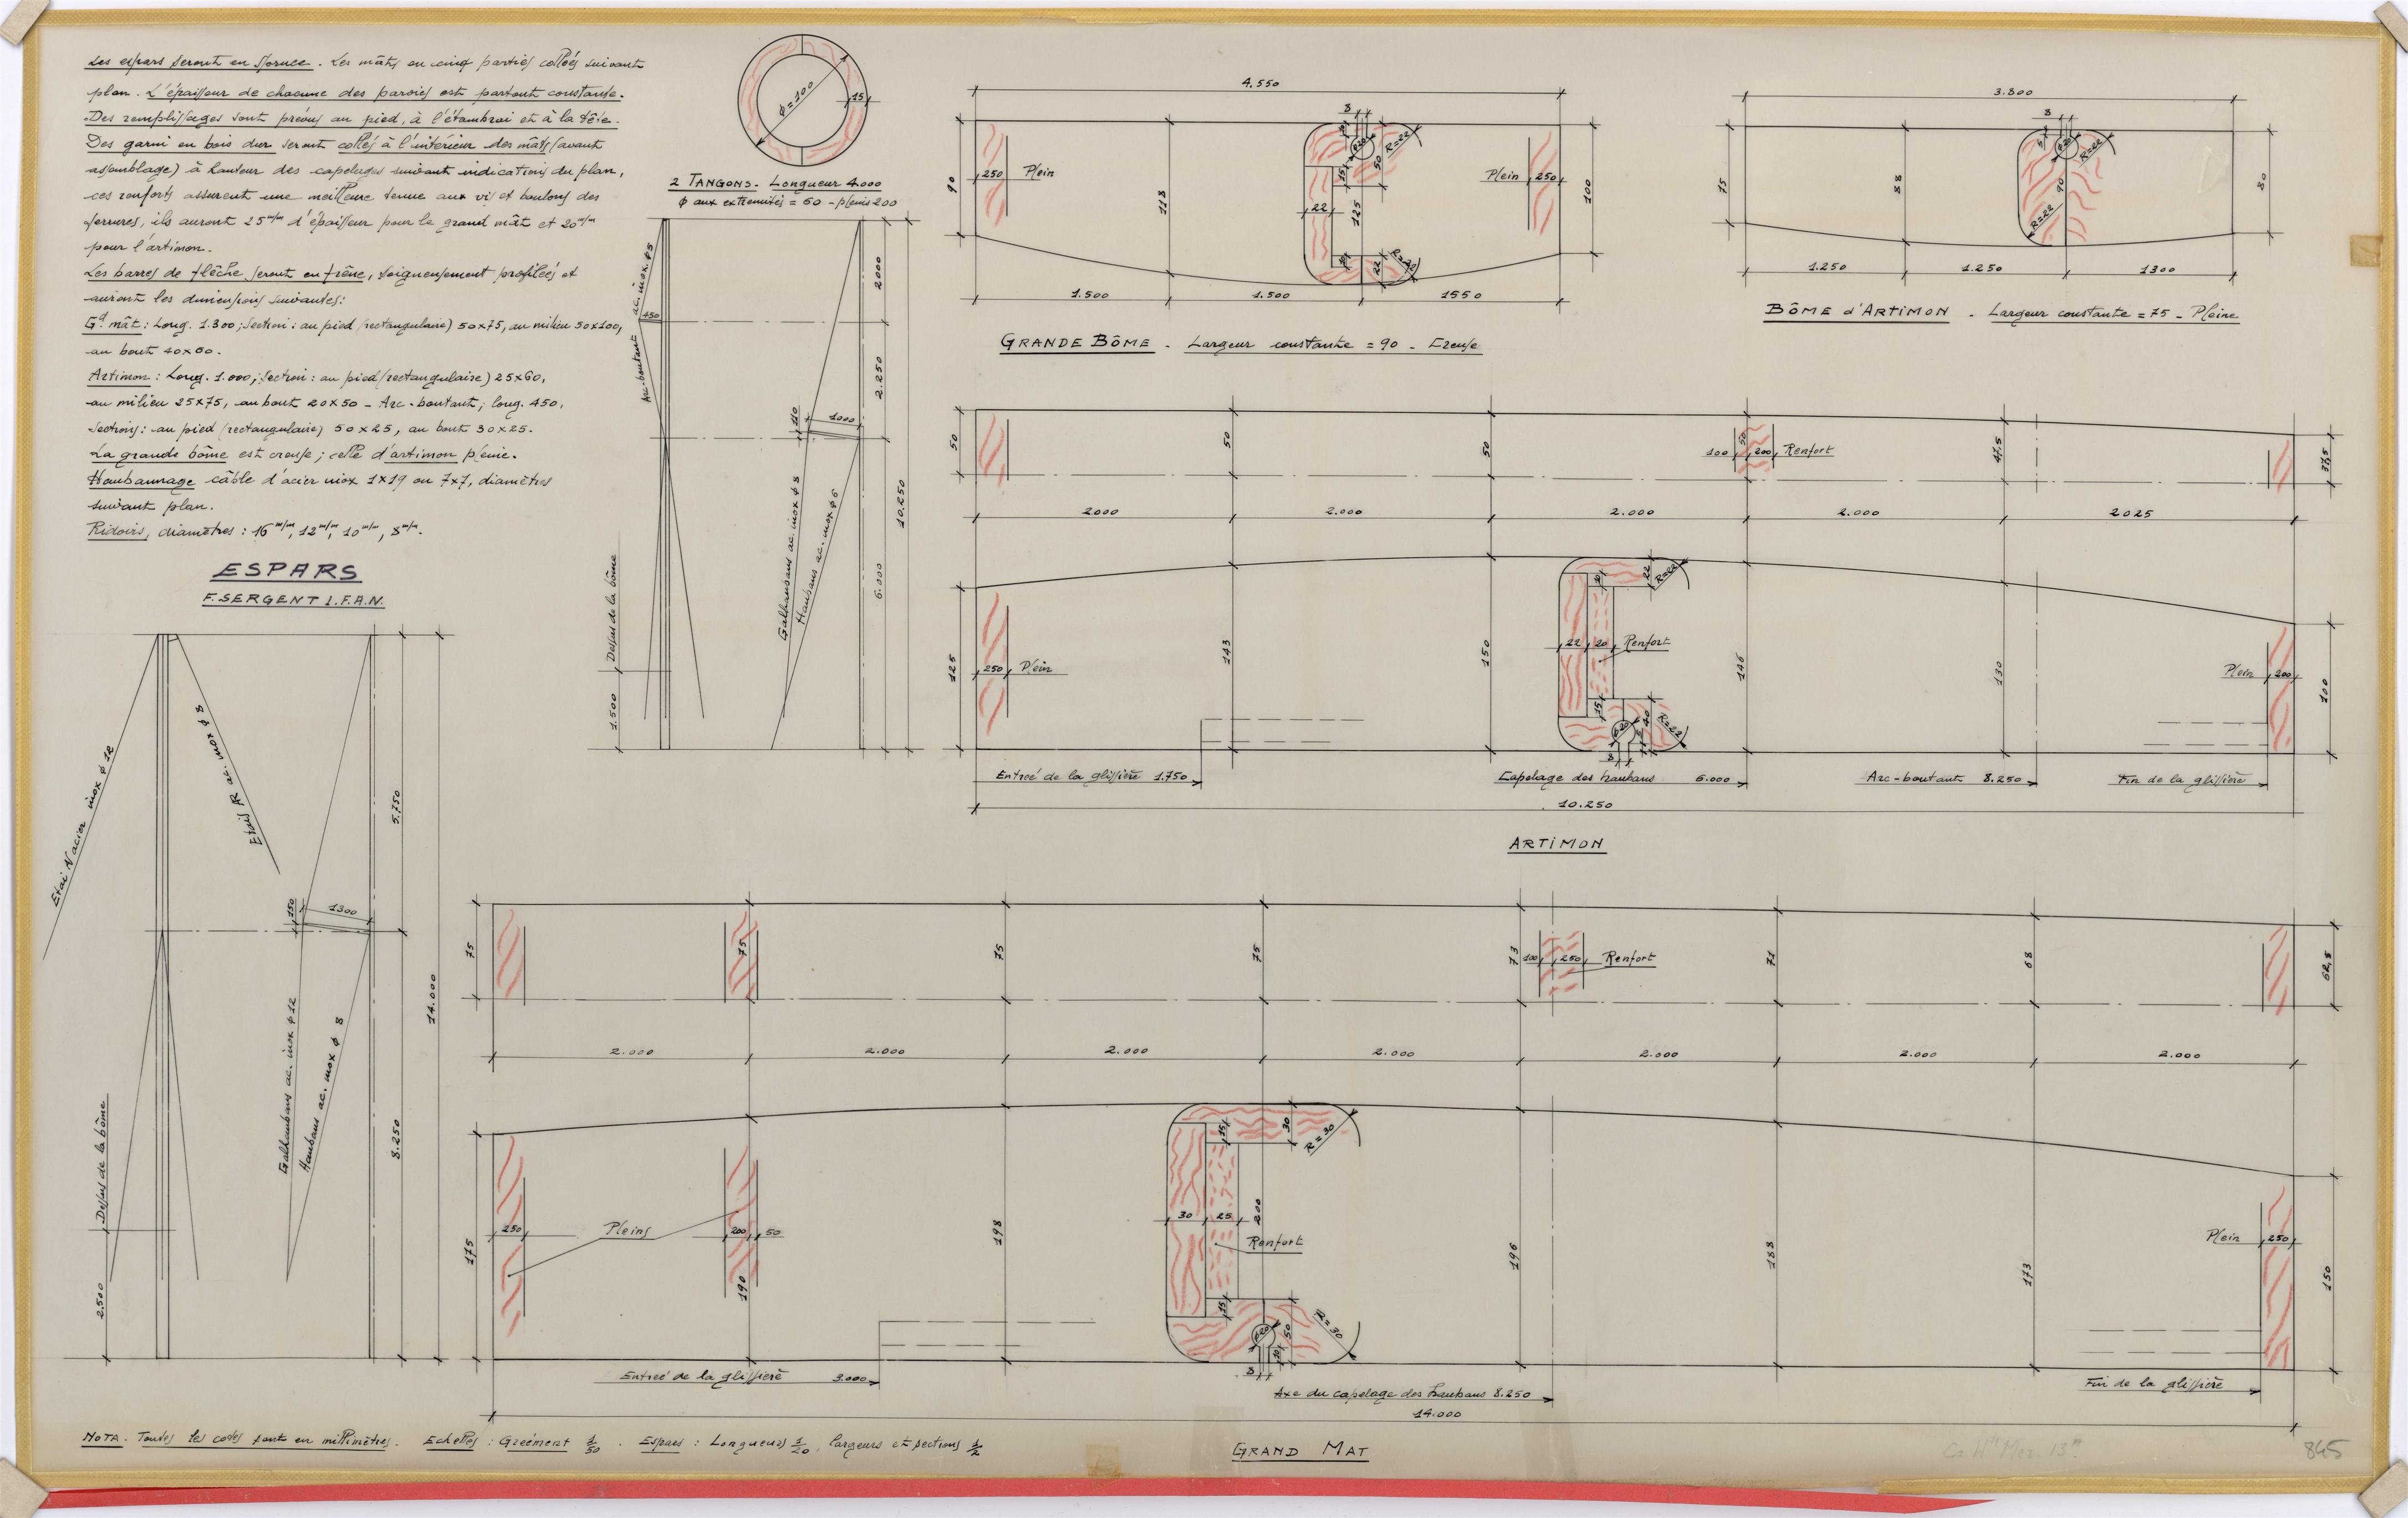 Les espars seront en Spruce. Les mâts en cinq parties collées suivant
plan. L'épaisseur de chacune des parois est partout constante.
Des remplissages sont prévus au pied, à l'étambrai et à la tête.
Des garni en bois dur seront collés à l'intérieur des mâts (avant
assemblage) à hauteur des capelages suivant indications du plan,
ces renforts assurent une meilleure tenue aux vis et boulons des
ferrures, ils auront 25 m/m d'épaisseur pour le grand mât et 20 m/m
pour l'artimon.
Les barres de flêche seront en frêne, soigneusement profilées et
auront les dimensions suivantes:
Gd mât: Long. 1.300; Section: au pied (rectangulaire) 50x75, au milieu 50x100,
au bout 40x60.
Artimon: Long. 1.000; Section: au pied (rectangulaire) 25x60,
au milieu 25x75, au bout 20x50 - Arc-boutant; long. 450,
Sections: au pied (rectangulaire) 50x25, au bout 30x25.
La grande bôme est creuse; celle d'artimon pleine.
Haubannage câble d'acier inox 1x19 ou 7x7, diamètres
suivant plan.
Ridoirs, diamètres: 16 m/m, 12 m/m, 10 m/m, 8 m/m.
ESPARS
F. SERGENT I.F.A.N.
φ=100
15
2 TANGONS. Longueur 4.000
φ aux extremités = 60 - pleins 200
ac. inox φ 5
450
Arc-boutant
2000
2.250
110
1000
10.250
Galhaubans ac. inox φ 8
Haubans ac. inox φ 6
6.000
Dessus de la bôme
1.500
4.550
90
250
Plein
118
8
φ20
R=22
50
15
22
125
15
22
R=22
Plein
250
100
1.500
1.500
1550
GRANDE BÔME - Largeur constante = 90 - Creuse
3.800
75
88
8
φ20
R=22
90
R=22
80
1.250
1.250
1300
BÔME d'ARTIMON - Largeur constante = 75 - Pleine
50
50
50
50
100
200
Renfort
47,5
37,5
2000
2.000
2.000
2.000
2025
125
250
Plein
143
150
15
22
R=22
22
20
Renfort
15
φ20
40
R=22
8
146
130
Plein
200
100
Entrée de la glissière 1.750
Capelage des haubans 6.000
Arc-boutant 8.250
Fin de la glissière
10.250
ARTIMON
Etai N acier inox φ 12
Etais R ac. inox φ 8
5.750
150
1300
14.000
Galhaubans ac. inox φ 12
Haubans ac. inox φ 8
8.250
Dessus de la bôme
2.500
75
75
75
75
73
100
250
Renfort
71
68
62,5
2.000
2.000
2.000
2.000
2.000
2.000
2.000
175
250
Pleins
200
50
190
198
15
30
R=30
30
25
200
Renfort
15
φ20
50
R=30
8
20
196
188
173
Plein
250
150
Entrée de la glissière 3.000
Axe du capelage des haubans 8.250
Fin de la glissière
14.000
NOTA. Toutes les cotes sont en millimètres. Echelles: Gréement 1/50. Espars: Longueurs 1/20, largeurs et sections 1/2
GRAND MAT
845